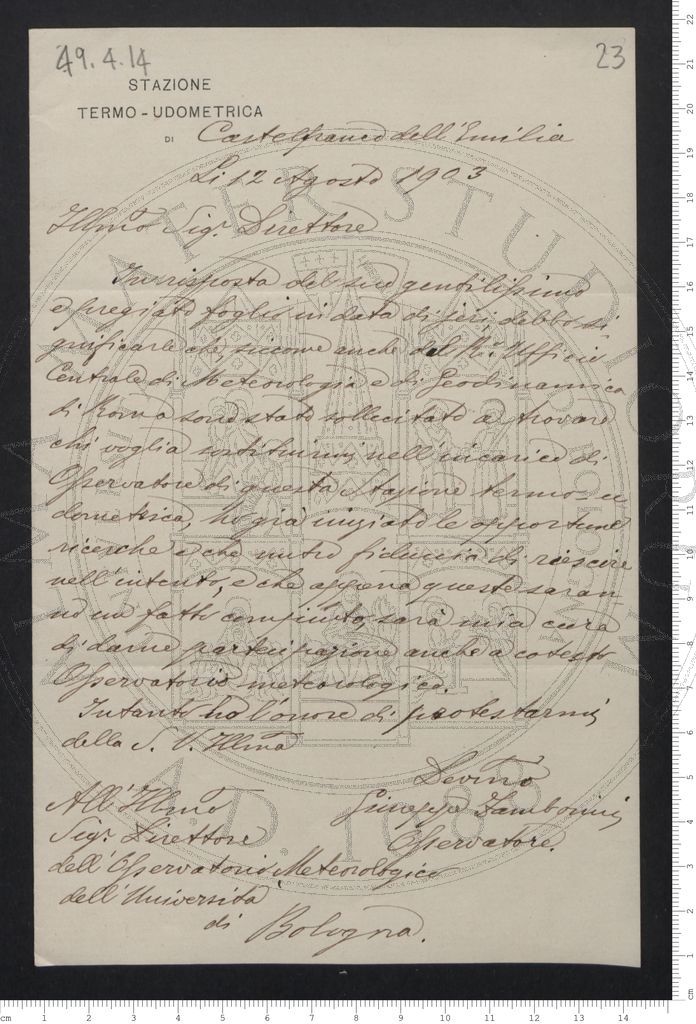 49.4.14
23
STAZIONE
TERMO-UDOMETRICA
DI Castelfranco dell'Emilia
Li 12 Agosto 1903
Illmo Sigr. Direttore
In risposta del suo gentilissimo
e pregiato foglio in data di ieri, debbo si
gnificarle che, siccome anche dal R.o Ufficio
Centrale di Meteorologia e di Geodinamica
di Roma sono stato sollecitato a trovare
chi voglia sostituirmi nell'incarico di
Osservatore di questa Stazione termo-u
dometrica, ho già iniziato le opportune
ricerche e che nutro fiducia di riescire
nell'intento, e che appena queste saran
no un fatto compiuto, sarà mia cura
di darne partecipazione anche a cotesto
Osservatorio meteorologico.
Intanto ho l'onore di protestarmi
della S. V. Illma
Devmo
Giuseppe Zambonini
Osservatore.
All'Illmo
Sigr. Direttore
dell'Osservatorio Meteorologico
dell'Università
di Bologna.
ALMA MATER STUDIORUM
A.D. 1088